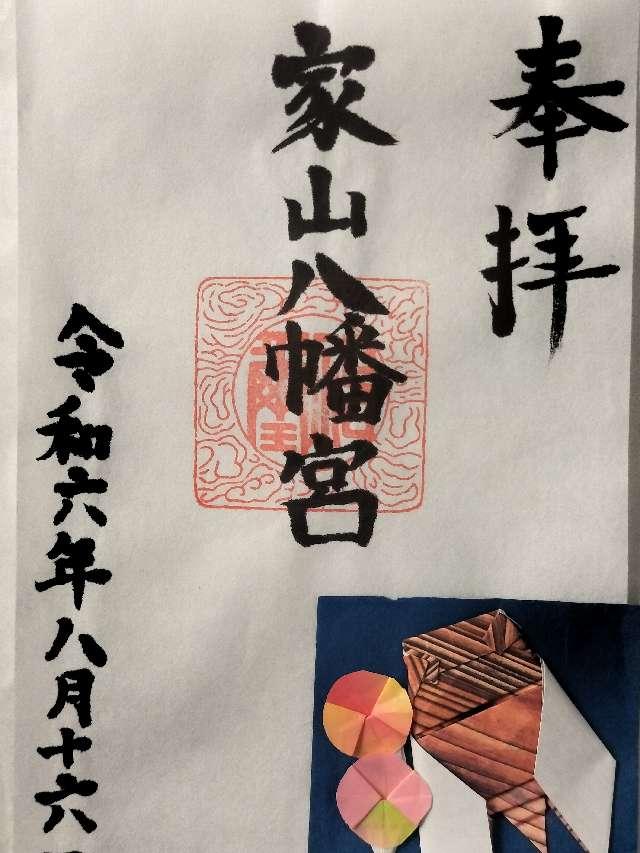 奉拝
家山八幡宮
令和六年八月十六日